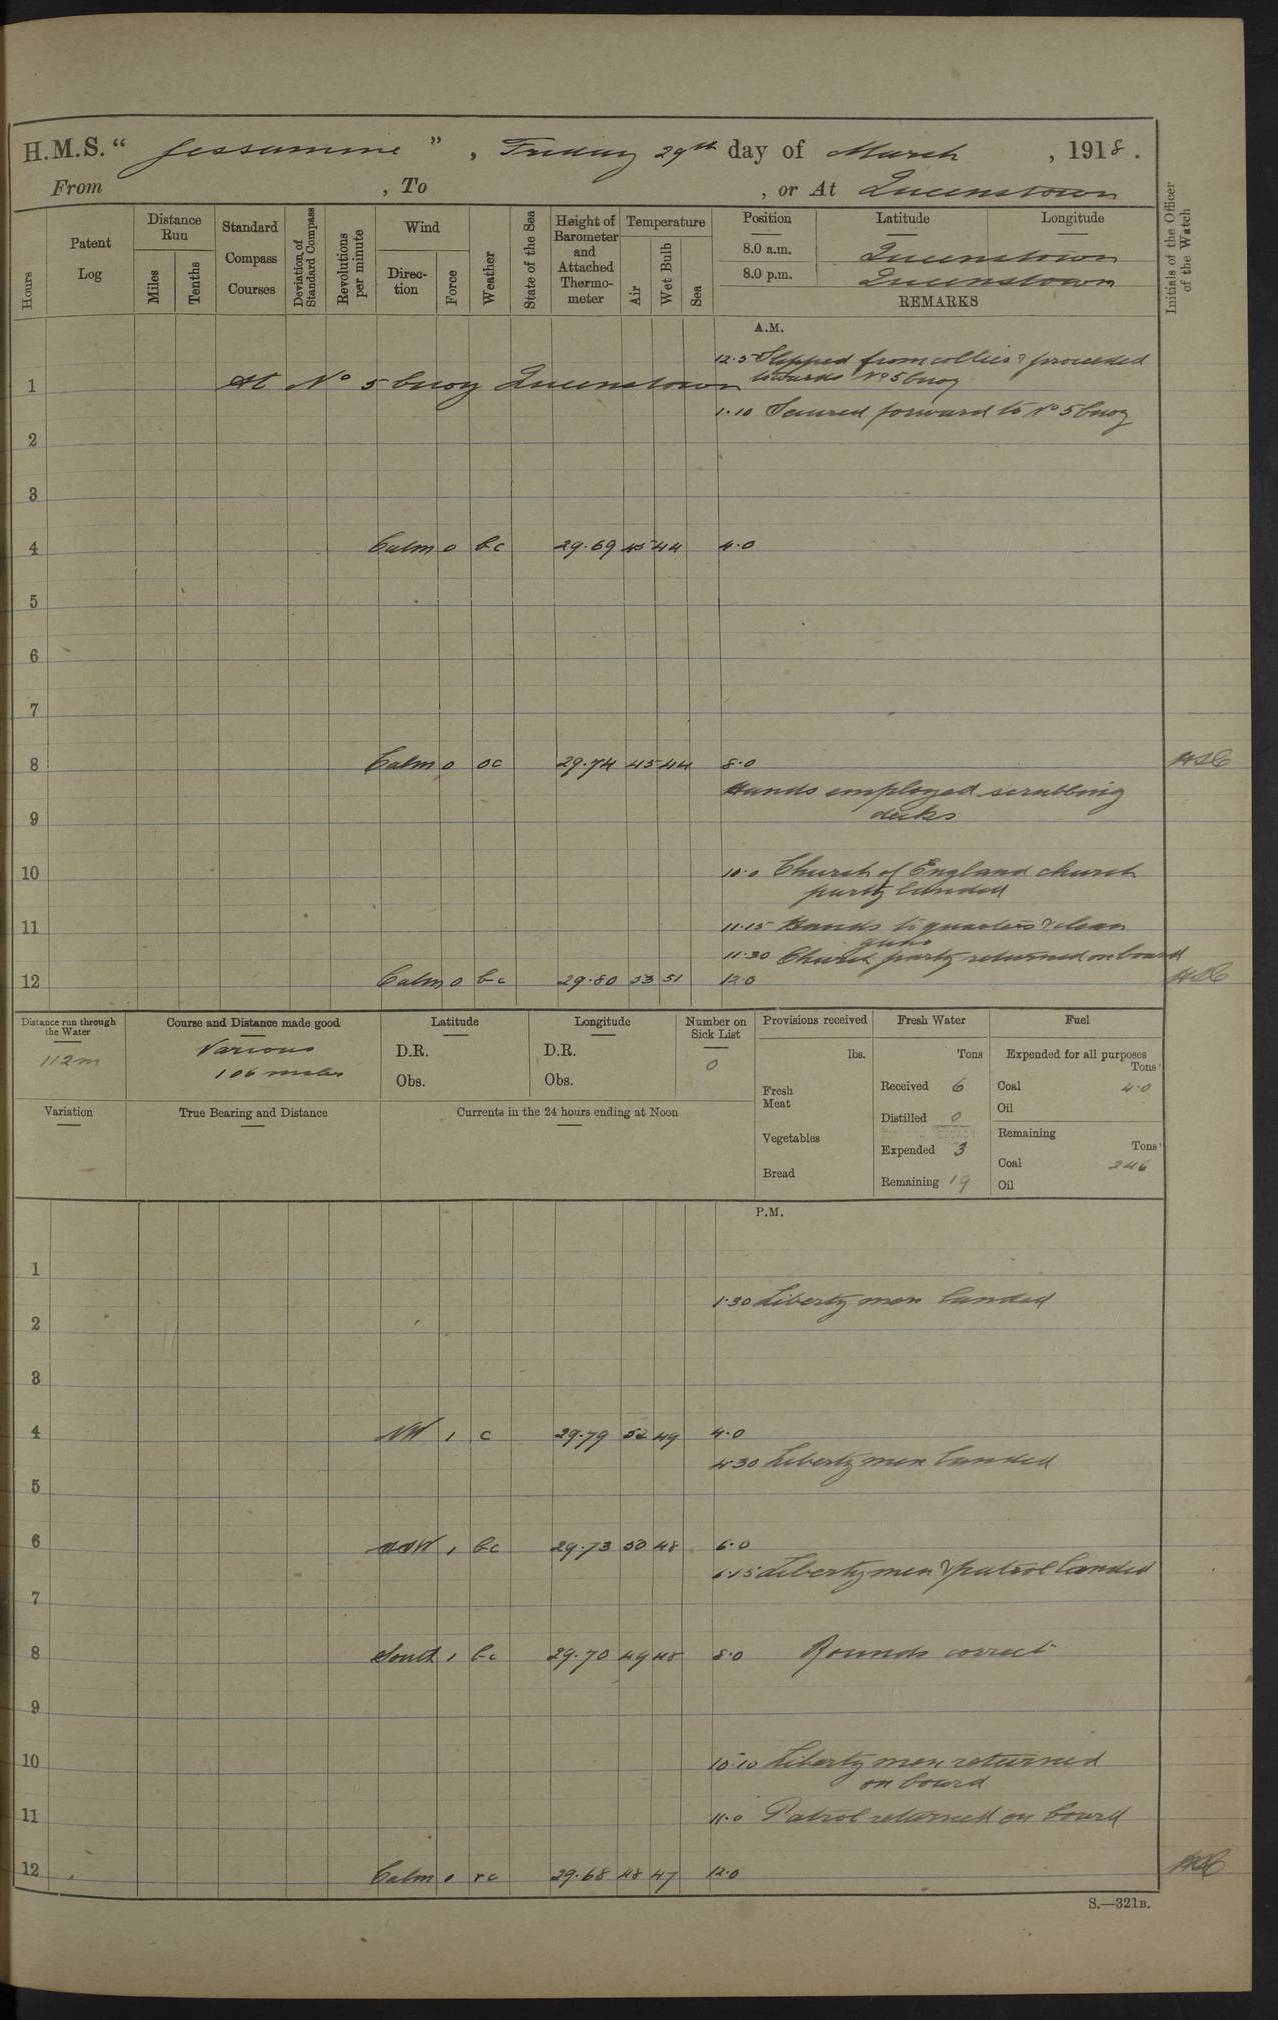 H.M.S. “ Jessamine ” , Friday 29th day of March , 1918 .
From , To , or At Queenstown
Hours
Patent Log
Distance Run
Miles
Tenths
Standard Compass Courses
Deviation of Standard Compass
Revolutions per minute
Wind
Direc-tion
Force
Weather
State of the Sea
Height of Barometer and Attached Thermo-meter
Temperature
Air
Wet Bulb
Sea
Position Latitude Longitude
8.0 a.m. Queenstown
8.0 p.m. Queenstown
REMARKS
Initials of the Officer of the Watch
A.M.
12.5 Slipped from collier & proceeded
towards No 5 buoy
1 At No 5 buoy Queenstown
1.10 Secured forward to No 5 buoy
2
3
4 Calm 0 bc 29.69 45 44 4.0
5
6
7
8 Calm 0 oc 29.74 45 44 8.0
Hands employed scrubbing
decks
9
10 10.0 Church of England church
party landed
11 11.15 Hands to quarters & clean
guns
11.30 Church party returned on board
12 Calm 0 bc 29.80 53 51 12.0
Distance run through the Water
112m
Course and Distance made good
Various
106 miles
Latitude
D.R.
Obs.
Longitude
D.R.
Obs.
Number on Sick List
0
Provisions received
lbs.
Fresh Meat
Vegetables
Bread
Fresh Water
Tons
Received 6
Distilled 0
Expended 3
Remaining 19
Fuel
Expended for all purposes
Tons
Coal 40
Oil
Remaining
Tons
Coal 246
Oil
Variation
True Bearing and Distance
Currents in the 24 hours ending at Noon
P.M.
1
1.30 Liberty men landed
2
3
4 NW 1 c 29.79 52 49 4.0
4.30 Liberty men landed
5
6 SSW 1 bc 29.73 50 48 6.0
6.15 Liberty men & patrol landed
7
8 South 1 bc 29.70 49 48 8.0 Rounds correct
9
10 10.10 Liberty men returned
on board
11 11.0 Patrol returned on board
12 Calm 0 rc 29.68 48 47 12.0
S.—321B.